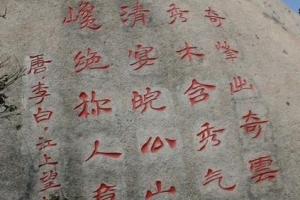 奇峰出奇雲
秀木含秀气
清宴皖公山
巉绝称人意
唐·李白·江上望